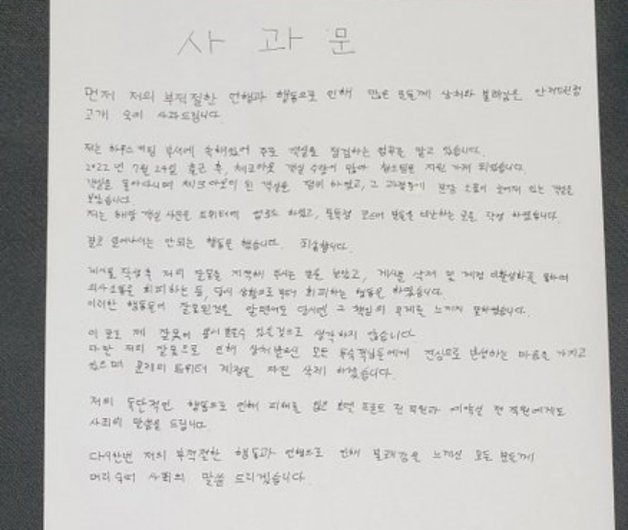 사 과 문
먼저 저의 부적절한 언행과 행동으로 인해 많은 분들께 상처와 불쾌감을 안겨드린점
고개 숙여 사과드립니다.
저는 하우스키핑 부서에 속해있어 주로 객실을 점검하는 업무를 맡고 있습니다.
2022년 7월 24일 출근 후, 체크아웃 객실 수량이 많아 청소팀을 지원 가게 되었습니다.
객실을 돌아다니며 체크아웃이 된 객실을 정비 하였고, 그 과정중에 분장 소품이 놓여져 있는 객실을
보았습니다
저는 해당 객실 사진을 트위터에 업로드 하였고, 불특정 코스어 분들을 비난하는 글을 작성 하였습니다.
결코 일어나서는 안되는 행동을 했습니다. 죄송합니다.
게시물 작성후 저의 잘못을 지적해 주시는 분을 보았고, 게시물 삭제 및 계정 비활성화를 통하여
의사소통을 회피하는 등, 당시 상황으로부터 회피하는 행동을 하였습니다.
이러한 행동들이 잘못된것을 알면서도 당시엔 그 책임의 무게를 느끼지 못하였습니다.
이 글로 제 잘못이 용서 받을수 있을것으로 생각하지 않습니다
다만 저의 잘못으로 인해 상처받으신 모든 투숙객님들에게 진심으로 반성하는 마음을 가지고
있으며 문제의 트위터 계정을 자진 삭제 하겠습니다.
저의 독단적인 행동으로 인해 피해를 입은 호텔 프론트 전 직원과 예약실 전 직원에게도
사죄의 말씀을 드립니다
다시한번 저의 부적절한 행동과 언행으로 인해 불쾌감을 느끼신 모든 분들께
머리숙여 사죄의 말씀 드리겠습니다.